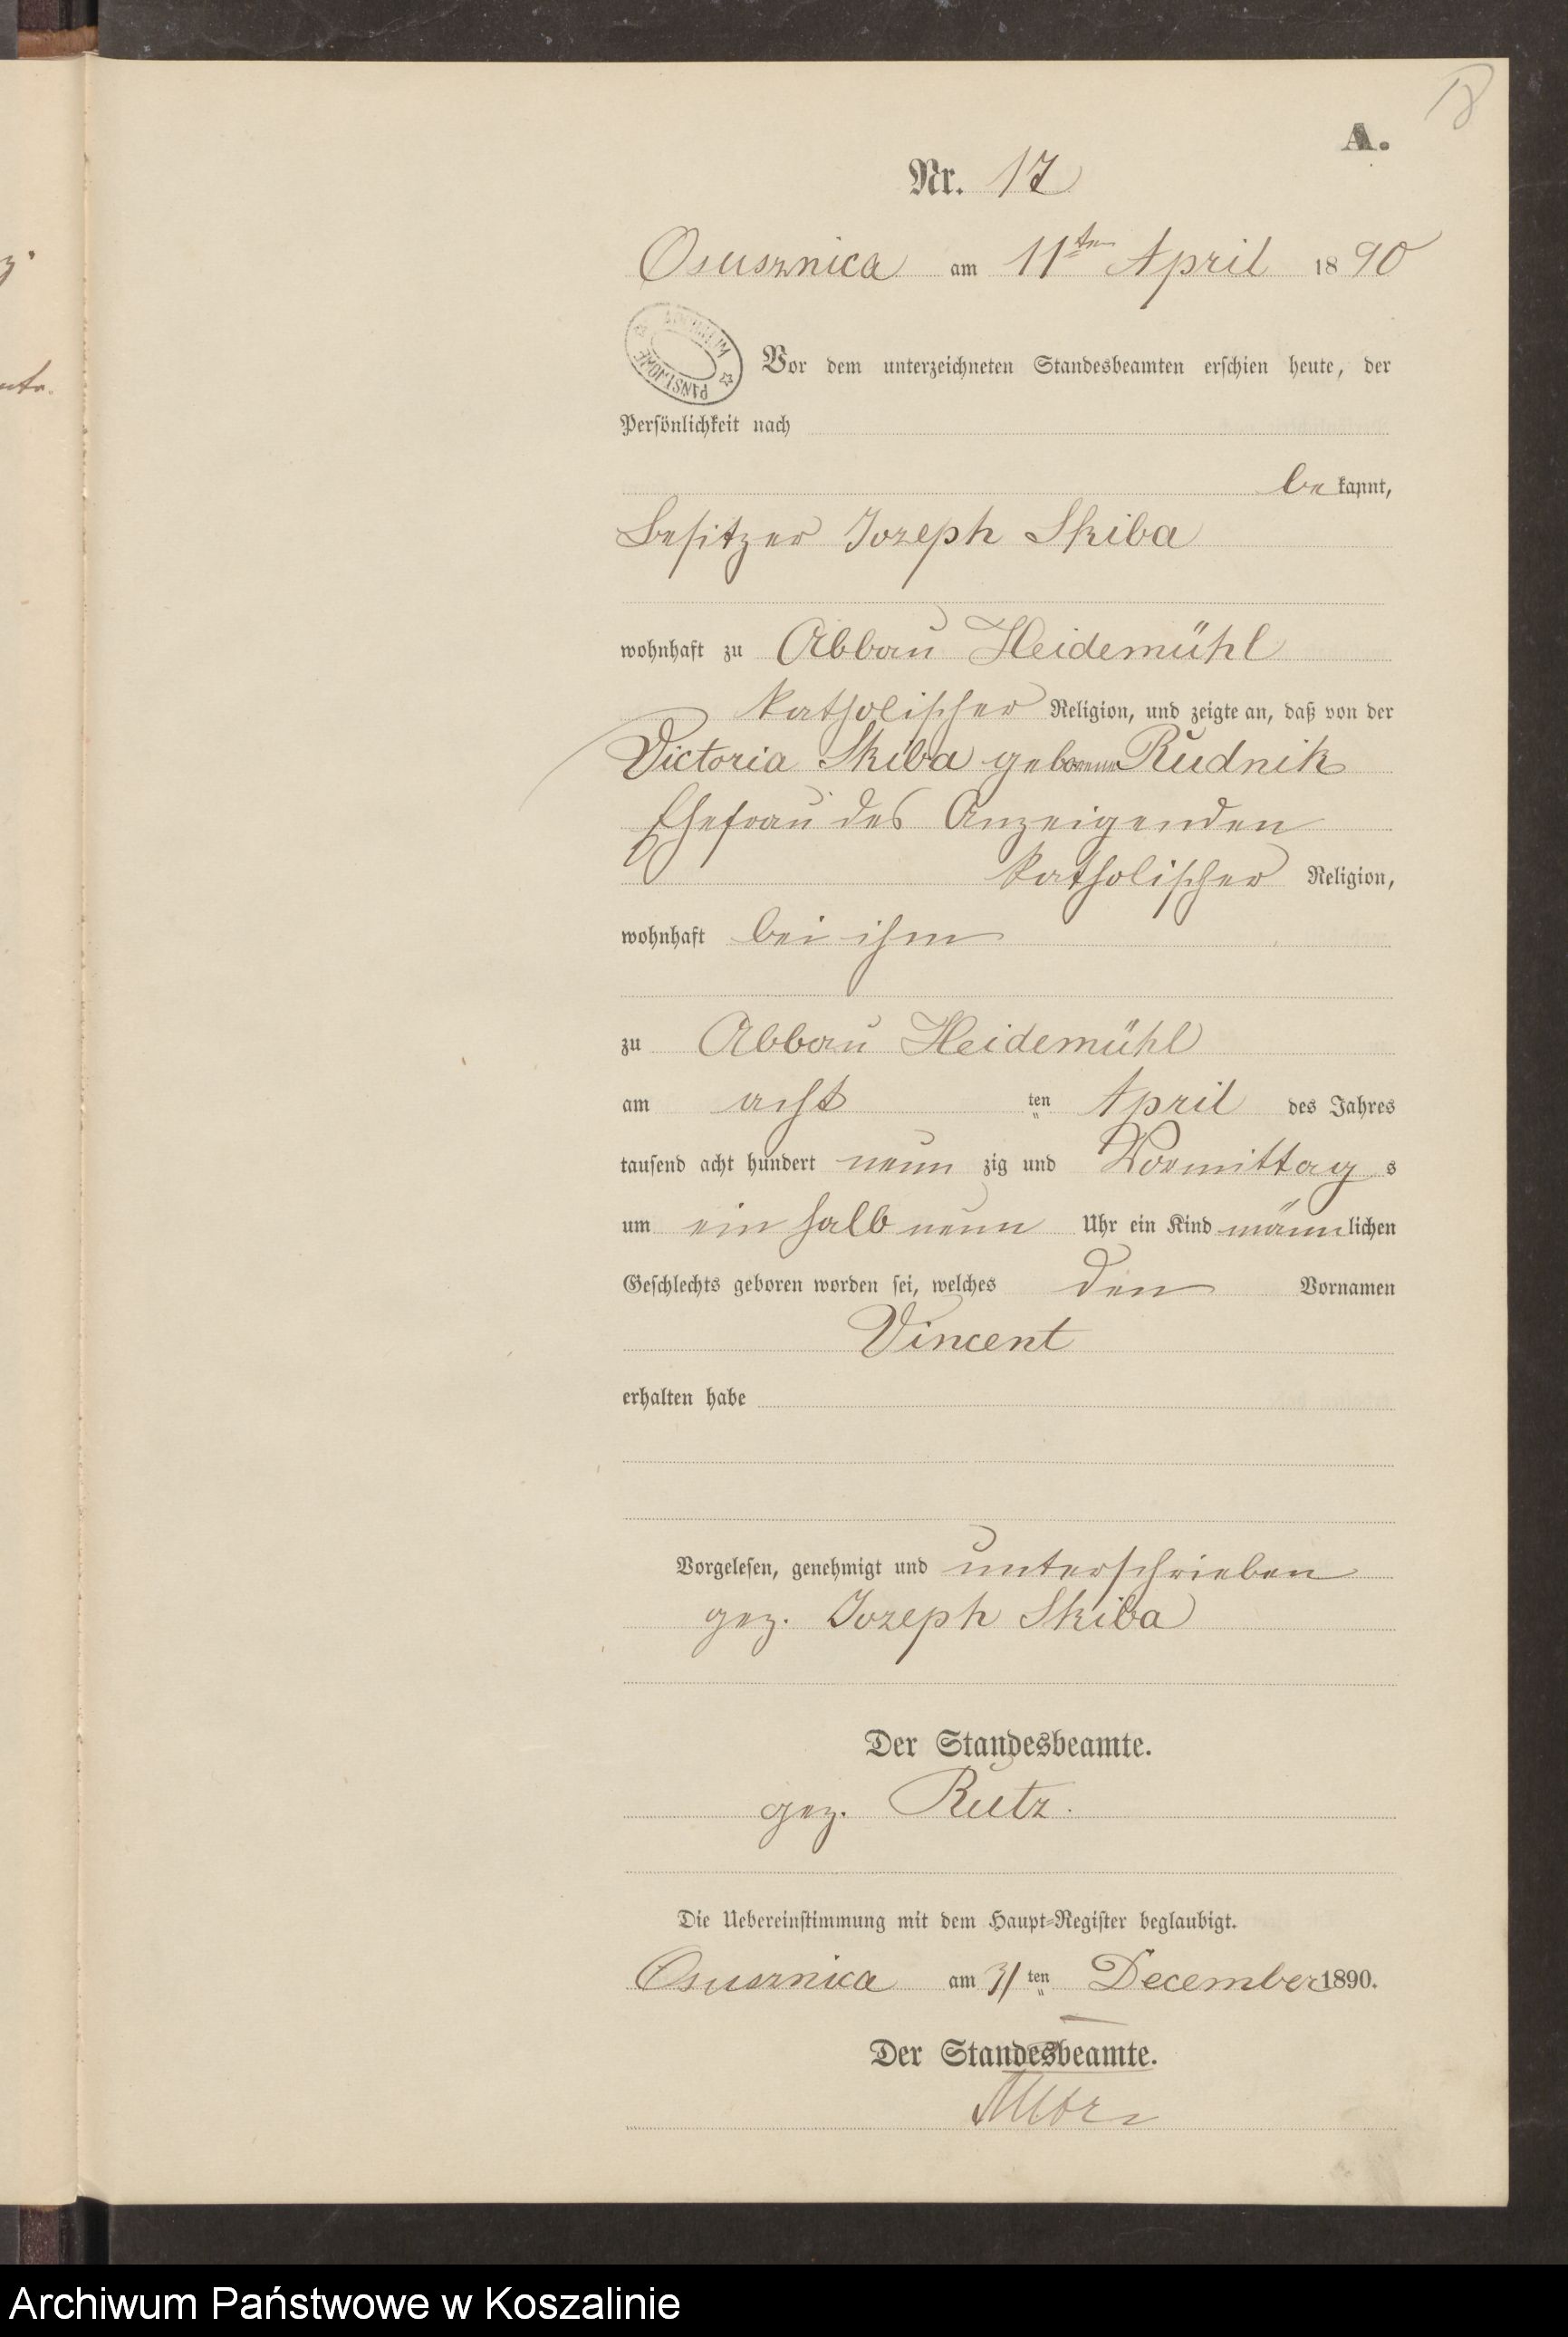 18
A.
Nr. 17
Osusznica am 11ten April 1890
Vor dem unterzeichneten Standesbeamten erschien heute, der
Persönlichkeit nach
bekannt,
Besitzer Jozeph Skiba
wohnhaft zu Abbau Heidemühl
katholischer Religion, und zeigte an, daß von der
Victoria Skiba geborenen Rudnik
Ehefrau des Anzeigenden
katholischer Religion,
wohnhaft bei ihm
zu Abbau Heidemühl
am acht ten April des Jahres
tausend acht hundert neun zig und Vormittag s
um ein halb neun Uhr ein Kind männlichen
Geschlechts geboren worden sei, welches den Vornamen
Vincent
erhalten habe
Vorgelesen, genehmigt und unterschrieben
gez. Jozeph Skiba
Der Standesbeamte.
gez. Rutz.
Die Uebereinstimmung mit dem Haupt-Register beglaubigt.
Osusznica am 31ten December 1890.
Der Standesbeamte.
Archiwum Państwowe w Koszalinie